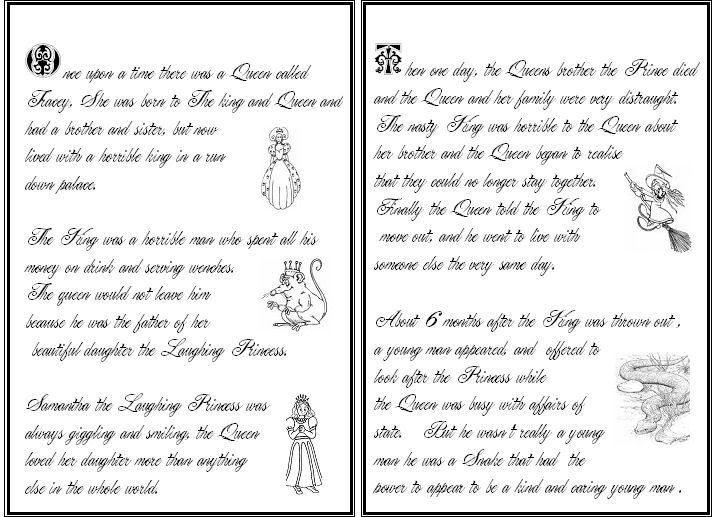 Once upon a time there was a Queen called
Tracey, She was born to The king and Queen and
had a brother and sister, but now
lived with a horrible king in a run
down palace.
The King was a horrible man who spent all his
money on drink and serving wenches.
The queen would not leave him
because he was the father of her
beautiful daughter the Laughing Princess.
Samantha the Laughing Princess was
always giggling and smiling, the Queen
loved her daughter more than anything
else in the whole world.
Then one day, the Queens brother the Prince died
and the Queen and her family were very distraught.
The nasty King was horrible to the Queen about
her brother and the Queen began to realise
that they could no longer stay together.
Finally the Queen told the King to
move out, and he went to live with
someone else the very same day.
About 6 months after the King was thrown out ,
a young man appeared, and offered to
look after the Princess while
the Queen was busy with affairs of
state. But he wasn't really a young
man he was a Snake that had the
power to appear to be a kind and caring young man .